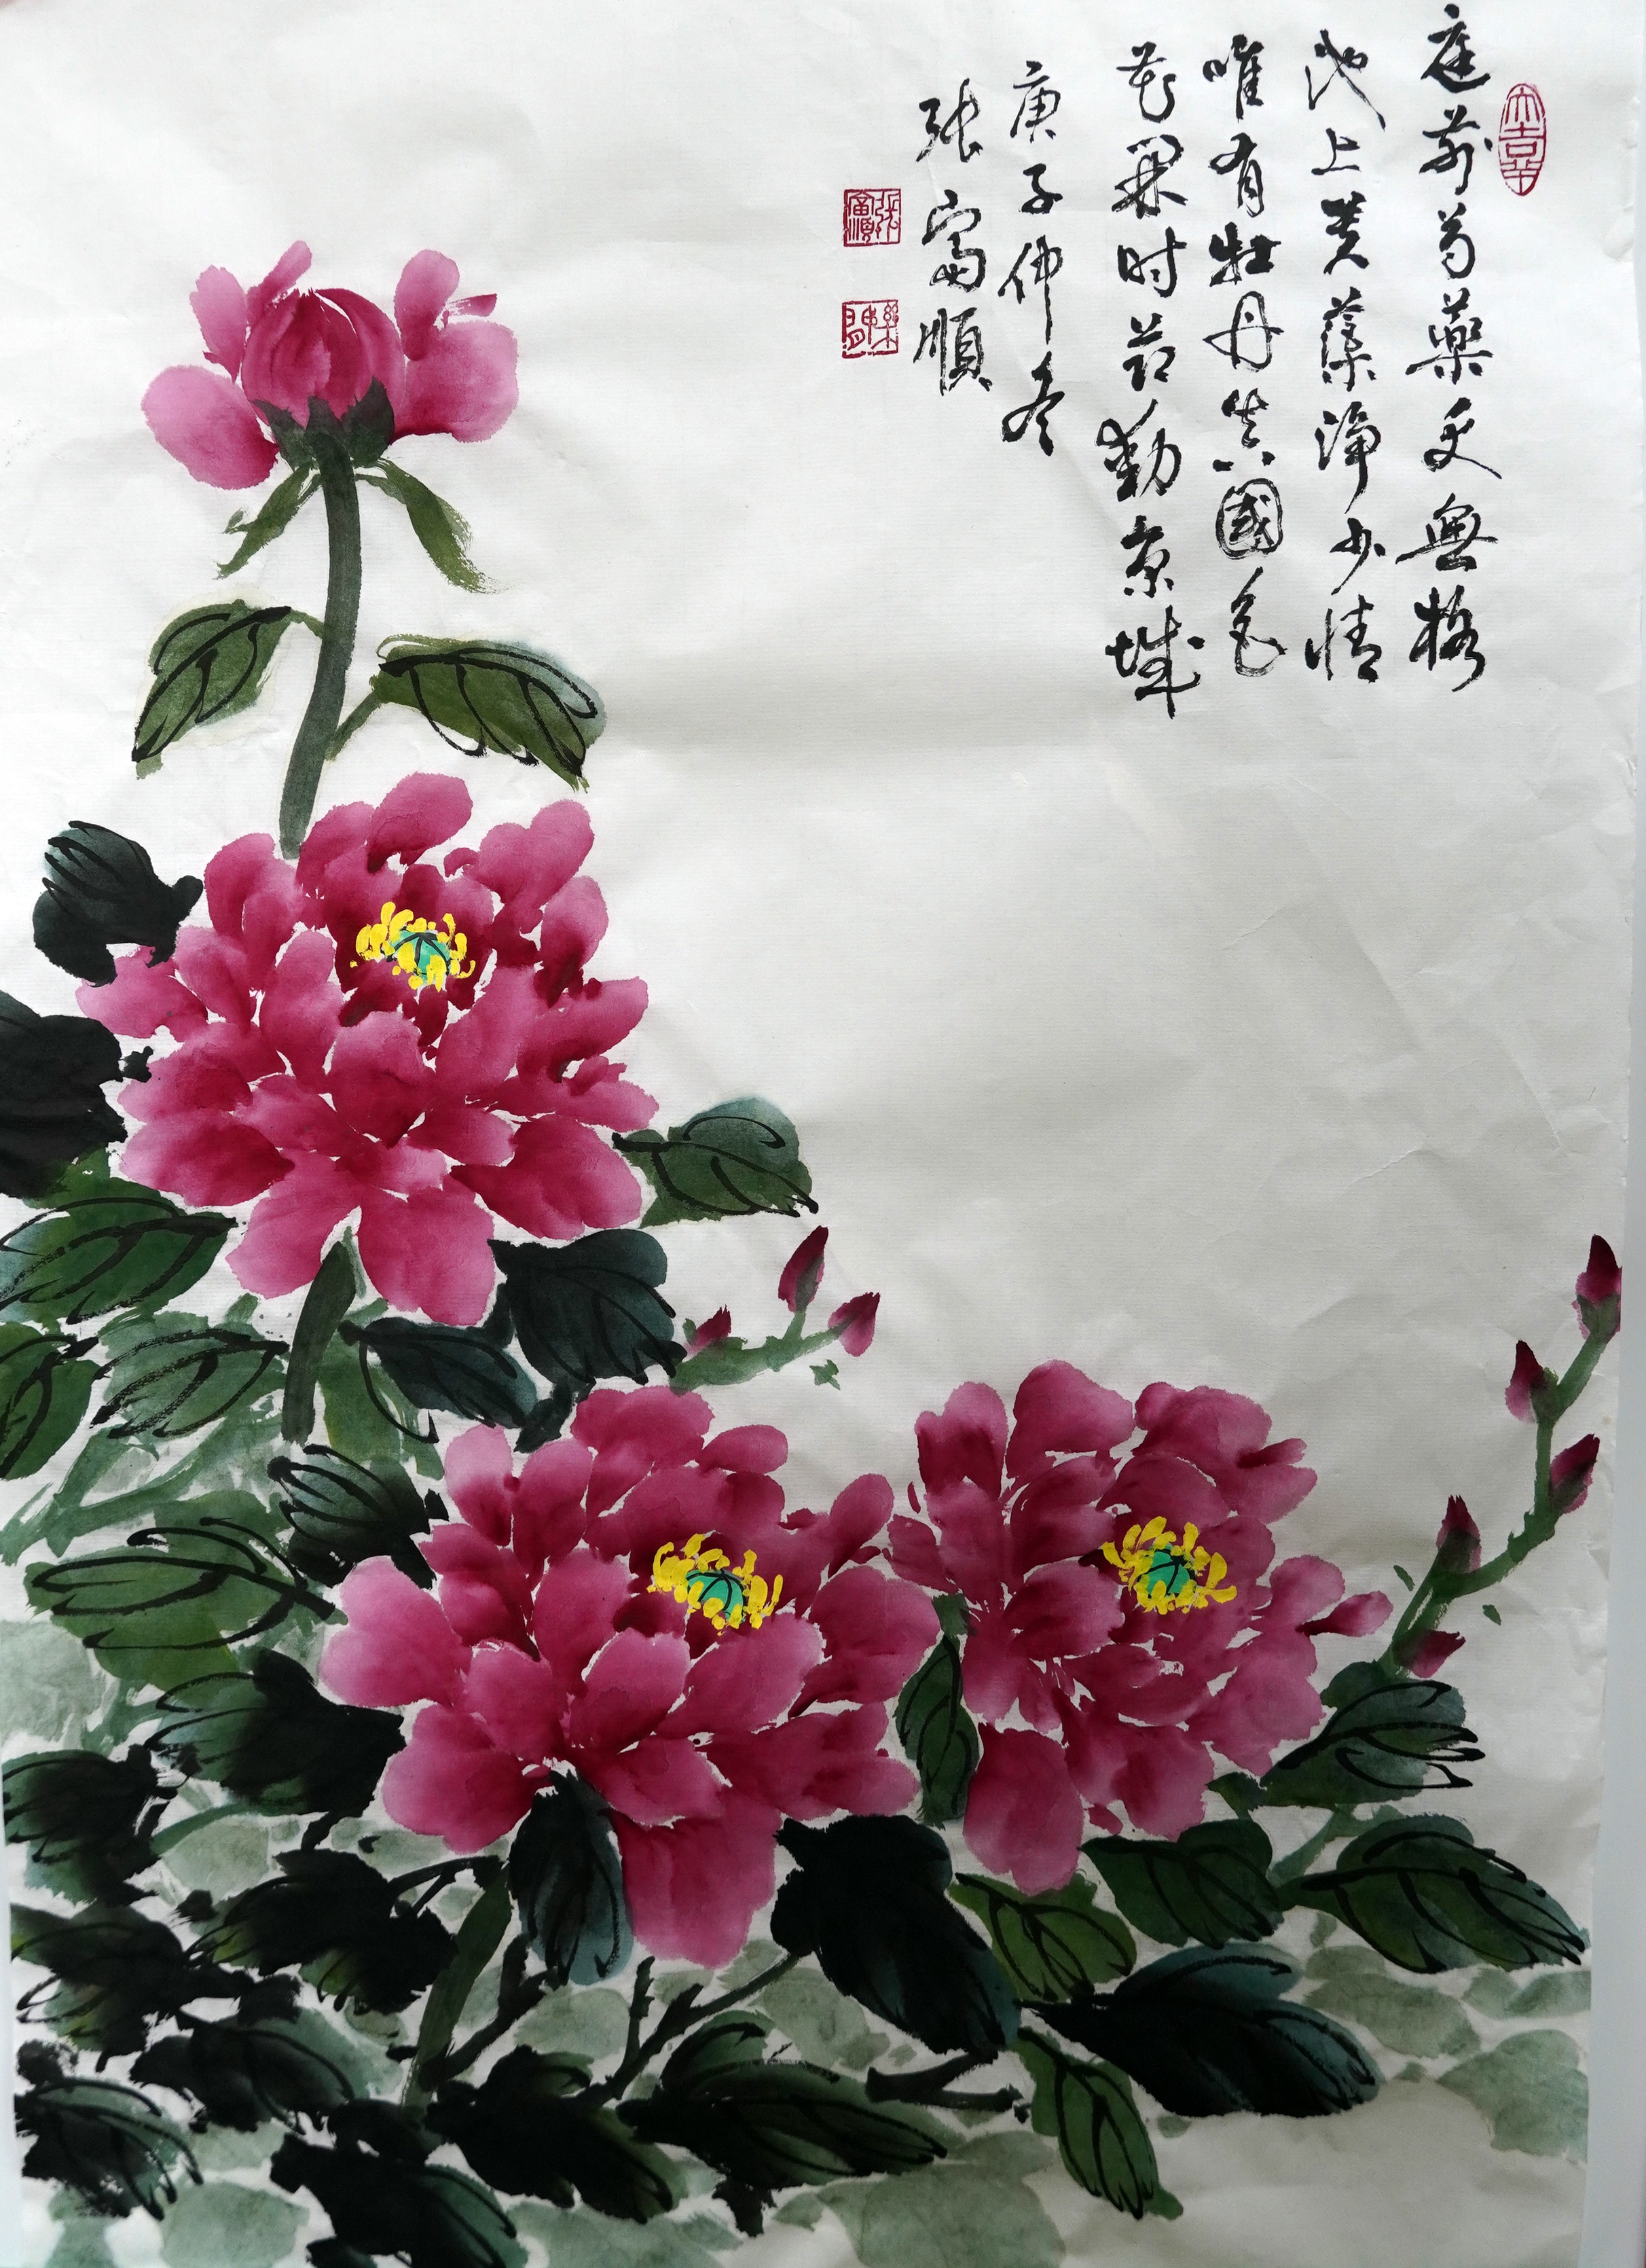 大吉羊
庭前芍藥妖無格
池上芙蕖淨少情
唯有牡丹真國色
花開时节動京城
庚子仲冬
張富順